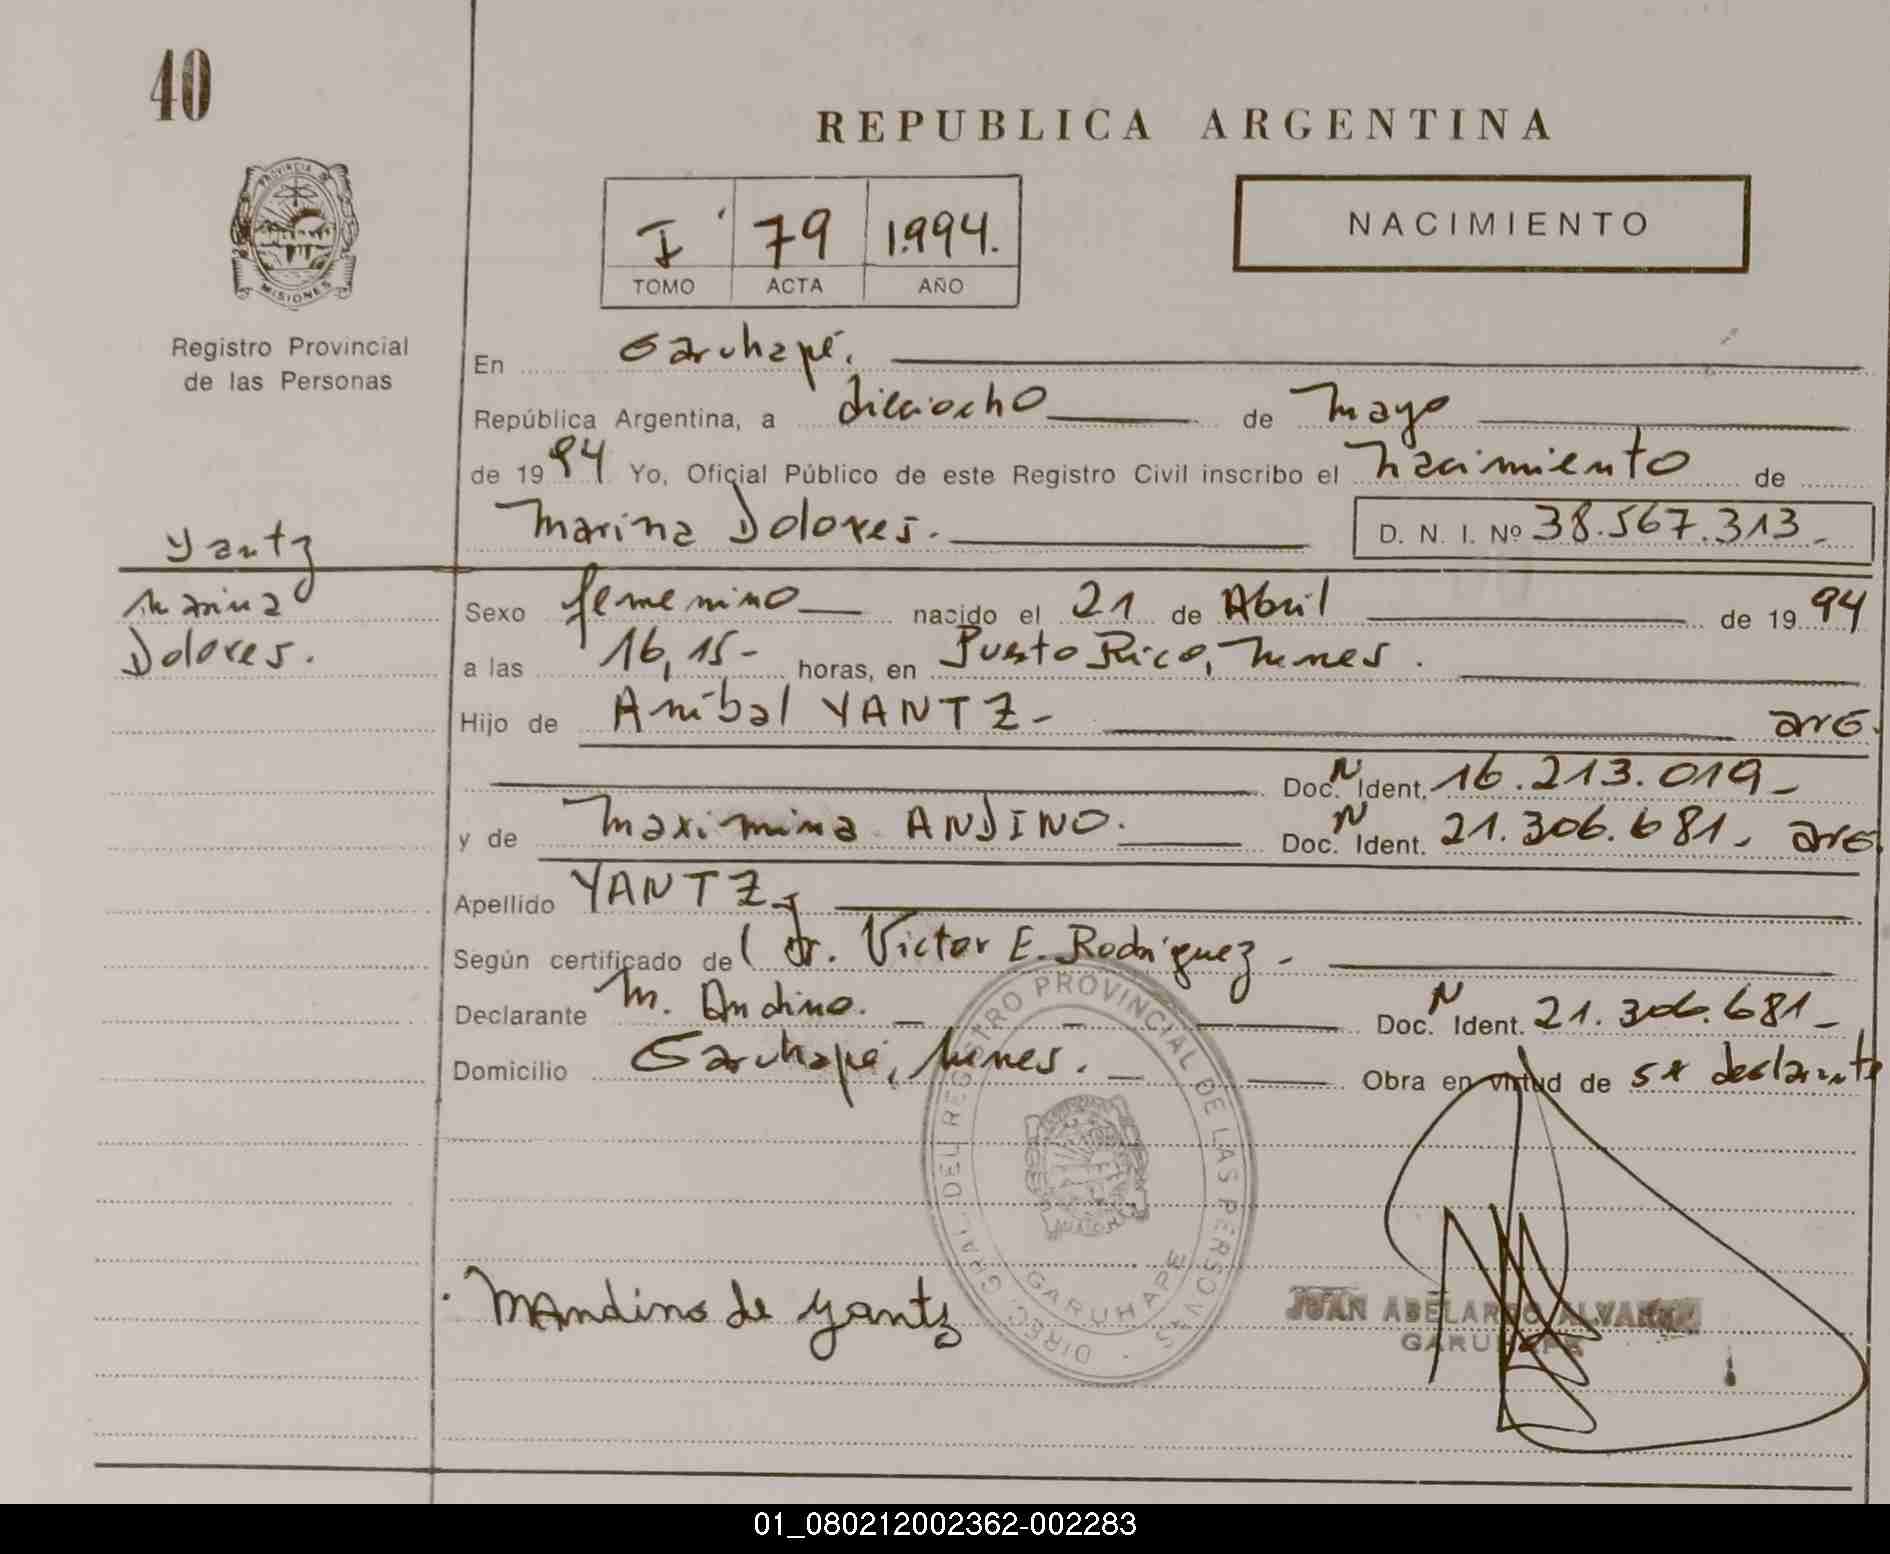 40
REPUBLICA ARGENTINA
PROVINCIA DE
MISIONES
I 79 1.994.
TOMO ACTA AÑO
NACIMIENTO
Registro Provincial
de las Personas
En Garuhapé.
República Argentina, a dieciocho de Mayo
de 1994 Yo, Oficial Público de este Registro Civil inscribo el nacimiento de
Marina Dolores. D. N. I. Nº 38.567.313-
Yantz
Marina
Dolores.
Sexo femenino nacido el 21 de Abril de 1994
a las 16,15- horas, en Puerto Rico, Mnes.
Hijo de Aníbal YANTZ- arg.
Doc. N Ident. 16.213.019-
y de Maximina ANDINO. Doc. N Ident. 21.306.681- arg.
Apellido YANTZ
Según certificado del dr. Victor E. Rodriguez-
Declarante M. Andino. Doc. N Ident. 21.306.681-
Domicilio Garuhapé, Mnes. Obra en virtud de ser declarante
DIREC. GRAL. DEL REGISTRO PROVINCIAL DE LAS PERSONAS
GARUHAPE
MAndino de Yantz
JUAN ABELARDO
GARUHAPE
01_080212002362-002283